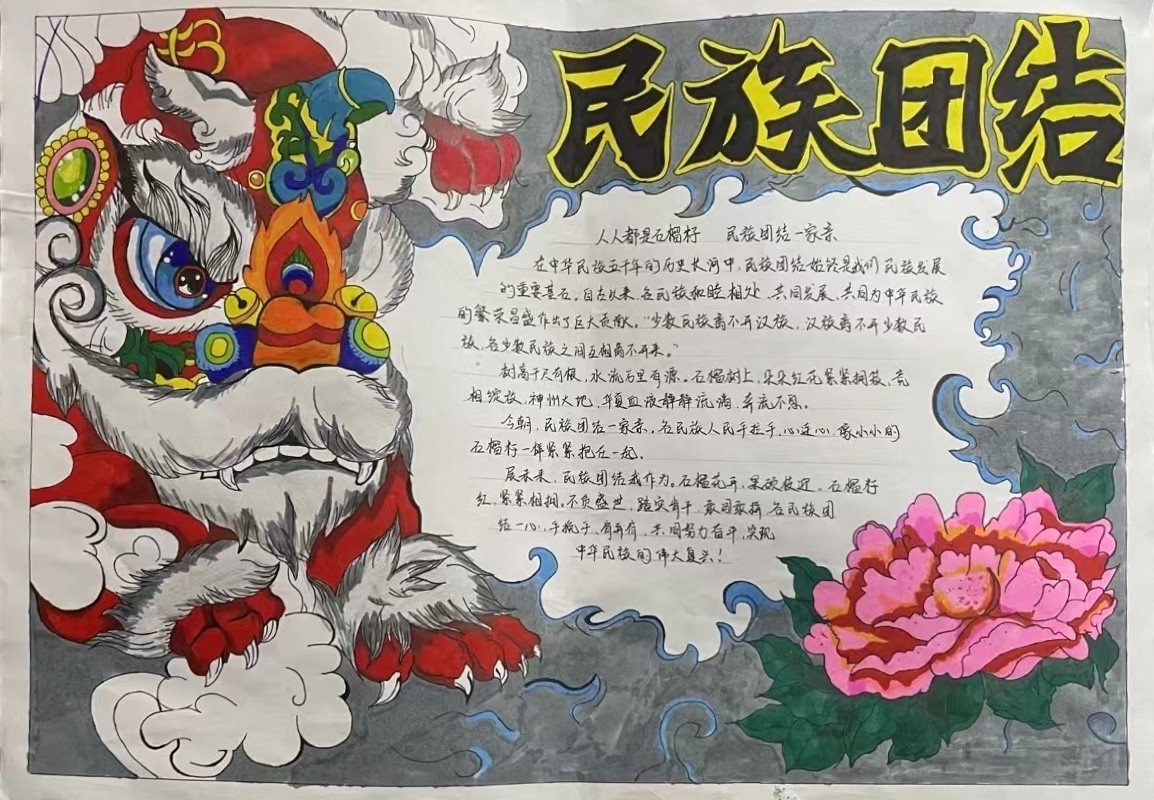 民族团结
人人都是石榴籽 民族团结一家亲
在中华民族五千年的历史长河中,民族团结始终是我们民族发展
的重要基石。自古以来,各民族和睦相处、共同发展、共同为中华民族
的繁荣昌盛作出了巨大贡献。“少数民族离不开汉族,汉族离不开少数民
族,各少数民族之间互相离不开来。”
树高千尺有根,水流万里有源。石榴树上,朵朵红花紧紧拥簇、竞
相绽放,神州大地,华夏血液静静流淌,奔流不息。
今朝,民族团结一家亲。各民族人民手拉手,心连心,像小小的
石榴籽一样紧紧抱在一起。
展未来,民族团结我作为。石榴花开,果硕枝近。石榴籽
红,紧紧相拥。不负盛世,踏实肯干,敢闯敢拼,各民族团
结一心,手挽手、肩并肩,共同努力奋斗,实现
中华民族的伟大复兴!